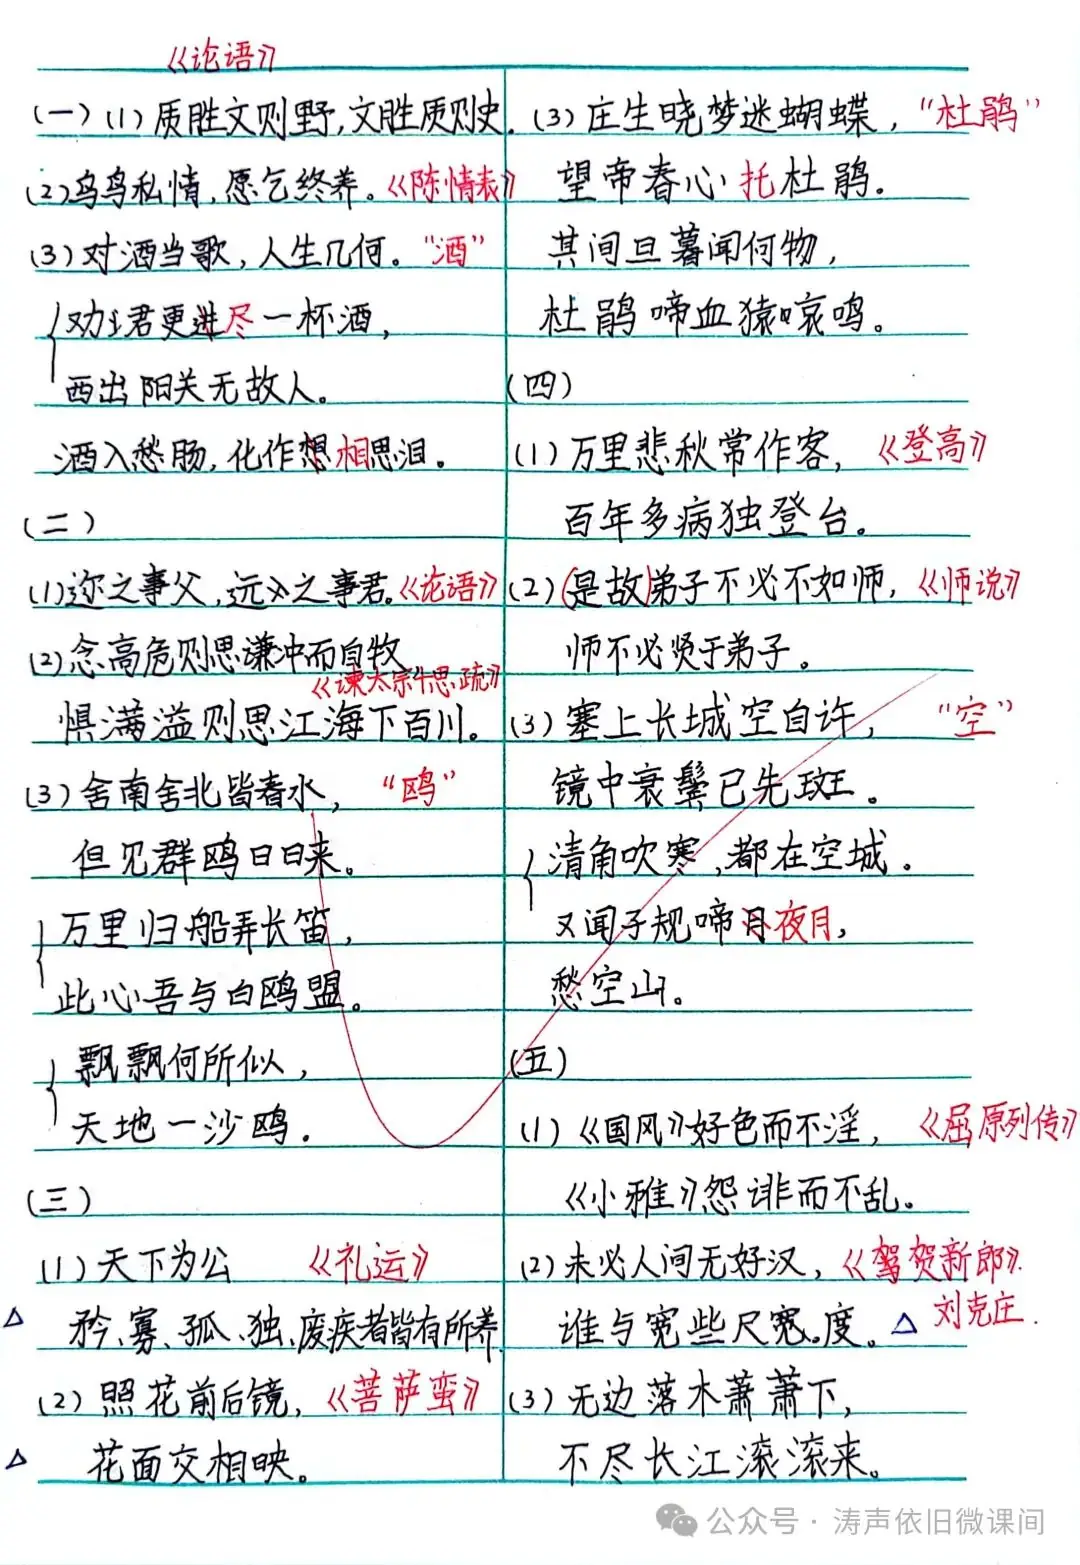 《论语》
(一)(1)质胜文则野,文胜质则史.
(2)乌鸟私情,愿乞终养。《陈情表》
(3)对酒当歌,人生几何。“酒”
劝君更进尽一杯酒,
西出阳关无故人。
酒入愁肠,化作想相思泪。
(二)
(1)迩之事父,远之事君。《论语》
(2)念高危则思谦冲而自牧
《谏太宗十思疏》
惧满溢则思江海下百川。
(3)舍南舍北皆春水,“鸥”
但见群鸥日日来。
万里归船弄长笛,
此心吾与白鸥盟。
飘飘何所似,
天地一沙鸥.
(三)
(1)天下为公 《礼运》
矜、寡、孤、独、废疾者皆有所养.
(2)照花前后镜,《菩萨蛮》
花面交相映。
(3)庄生晓梦迷蝴蝶,“杜鹃”
望帝春心托杜鹃.
其间旦暮闻何物,
杜鹃啼血猿哀鸣。
(四)
(1)万里悲秋常作客,《登高》
百年多病独登台。
(2)(是故)弟子不必不如师,《师说》
师不必贤于弟子。
(3)塞上长城空自许,“空”
镜中衰鬓已先斑。
清角吹寒,都在空城.
又闻子规啼月夜月,
愁空山。
(五)
(1)《国风》好色而不淫,《屈原列传》
《小雅》怨诽而不乱。
(2)未必人间无好汉,《贺新郎》.
谁与宽些尺度。 刘克庄.
(3)无边落木萧萧下,
不尽长江滚滚来。
公众号·涛声依旧微课间